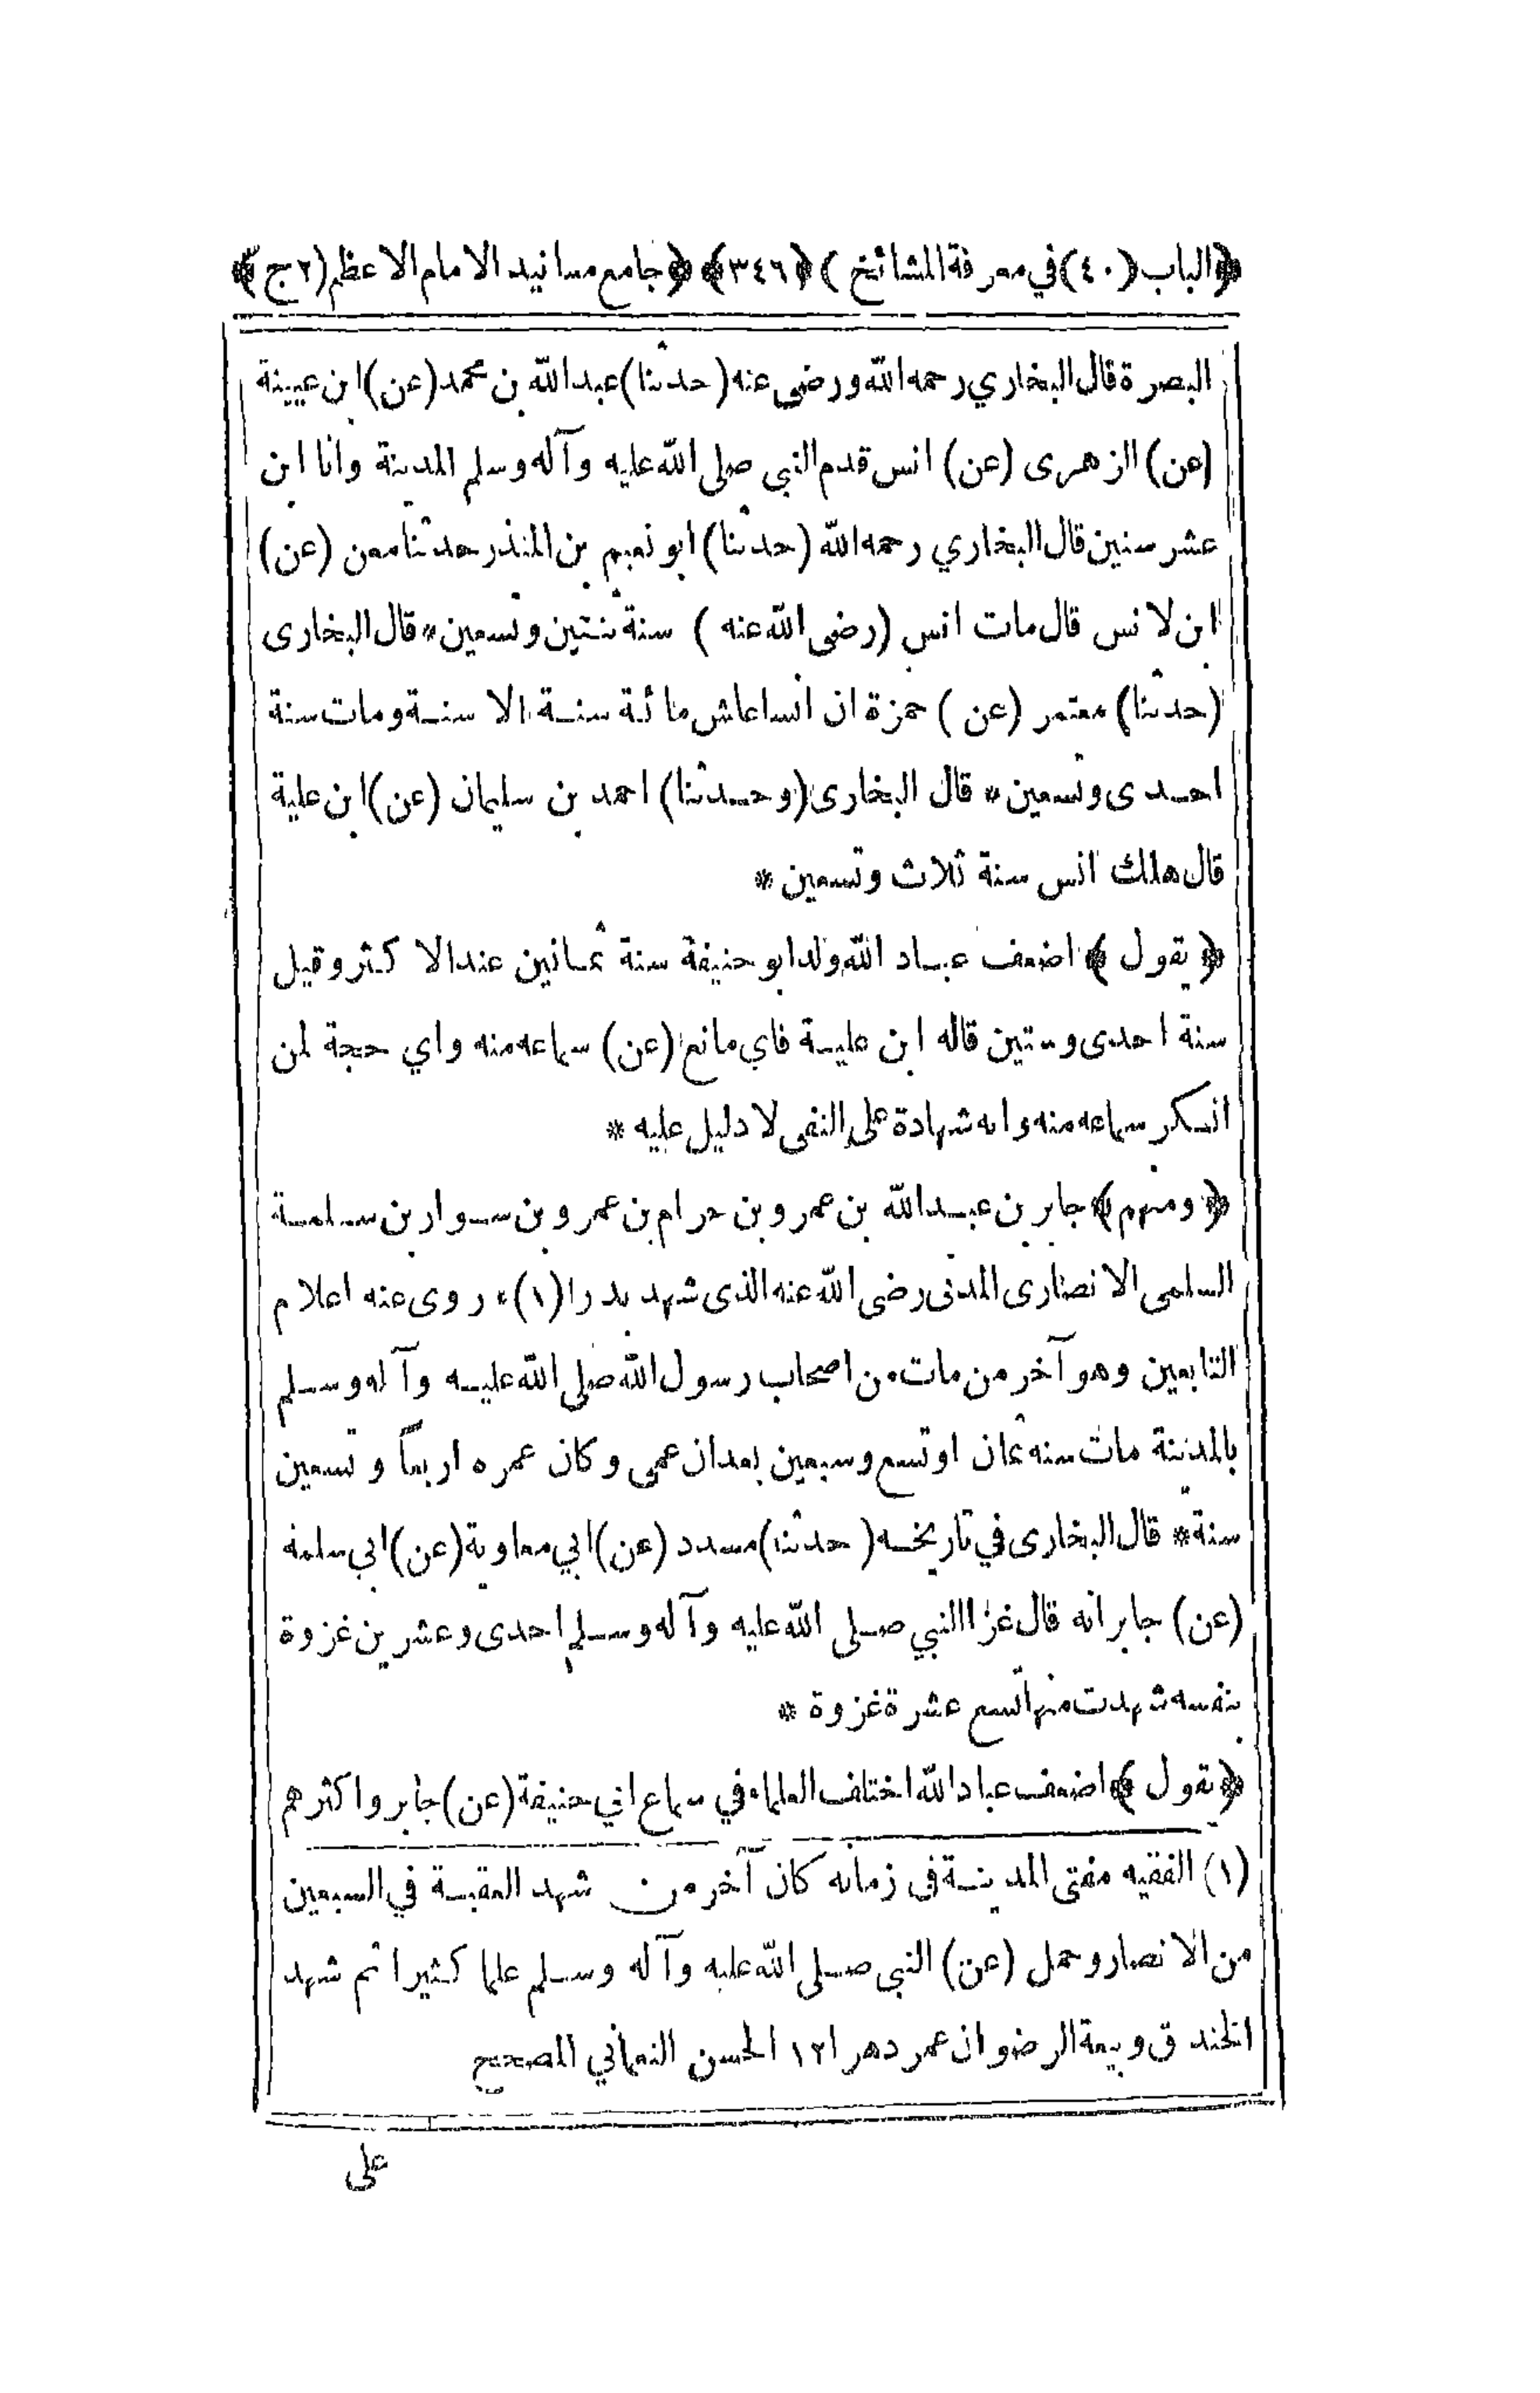 ﴿الباب (٤٠) في معرفة المشائخ) ﴿٣٤٦﴾ ﴿جامع مسانيد الامام الاعظم (٢ج)﴾
البصرة قال البخاري رحمه الله ورضى عنه (حدثنا) عبدالله بن محمد (عن) ابن عيينة
(عن) الزهرى (عن) انس قدم النبى صلى الله عليه وآله وسلم المدينة وانا ابن
عشر سنين قال البخاري رحمه الله (حدثنا) ابو نعيم بن المنذر حدثنا معن (عن)
ابن لانس قال مات انس (رضى الله عنه) سنة ثنتين وتسعين * قال البخارى
(حدثنا) معتمر (عن) حمزة ان انسا عاش مائة سنة الا سنة ومات سنة
احدى وتسعين * قال البخارى (وحدثنا) احمد بن سليمان (عن) ابن علية
قال هلك انس سنة ثلاث وتسعين *
﴿يقول﴾ اضعف عباد الله ولد ابو حنيفة سنة ثمانين عند الاكثر وقيل
سنة احدى وستين قاله ابن علية فاي مانع (عن) سماعه منه واي حجة لمن
انكر سماعه منه وانه شهادة على النفى لا دليل عليه *
﴿ومنهم﴾ جابر بن عبدالله بن عمرو بن حرام بن عمرو بن سوار بن سلمة
السلمى الانصارى المدنى رضى الله عنه الذى شهد بدرا (١) * روى عنه اعلام
التابعين وهو آخر من مات من اصحاب رسول الله صلى الله عليه وآله وسلم
بالمدينة مات سنه ثمان او تسع وسبعين بعد ان عمى وكان عمره اربعاً وتسعين
سنة * قال البخارى في تاريخه (حدثنا) مسدد (عن) ابي معاوية (عن) ابى سلمة
(عن) جابر انه قال غزا النبي صلى الله عليه وآله وسلم احدى وعشرين غزوة
بنفسه شهدت منها تسع عشرة غزوة *
﴿يقول﴾ اضعف عباد الله اختلف العلماء في سماع ابي حنيفة (عن) جابر واكثرهم
(١) الفقيه مفتى المدينة فى زمانه كان آخر من شهد العقبة في السبعين
من الانصار وحمل (عن) النبى صلى الله عليه وآله وسلم علما كثيرا ثم شهد
الخندق وبيعة الرضوان عمر دهرا ١٢ الحسن النعماني المصحح
على